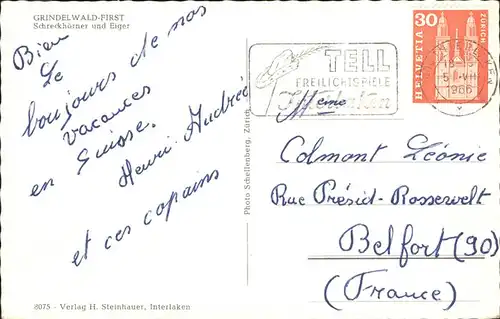 GRINDELWALD-FIRST
Schreckhörner und Eiger
Bien
Le
boujours de nos
vacances
en Suisse.
Henri-Andrée
et ces copains
8075 - Verlag H. Steinhauer, Interlaken
Photo Schellenberg, Zürich
TELL
FREILICHTSPIELE
Interlaken
HELVETIA
30
ZÜRICH
1966
Mme
Colmont Léonie
Rue Présid-Rosserwelt
Belfort (90)
(France)